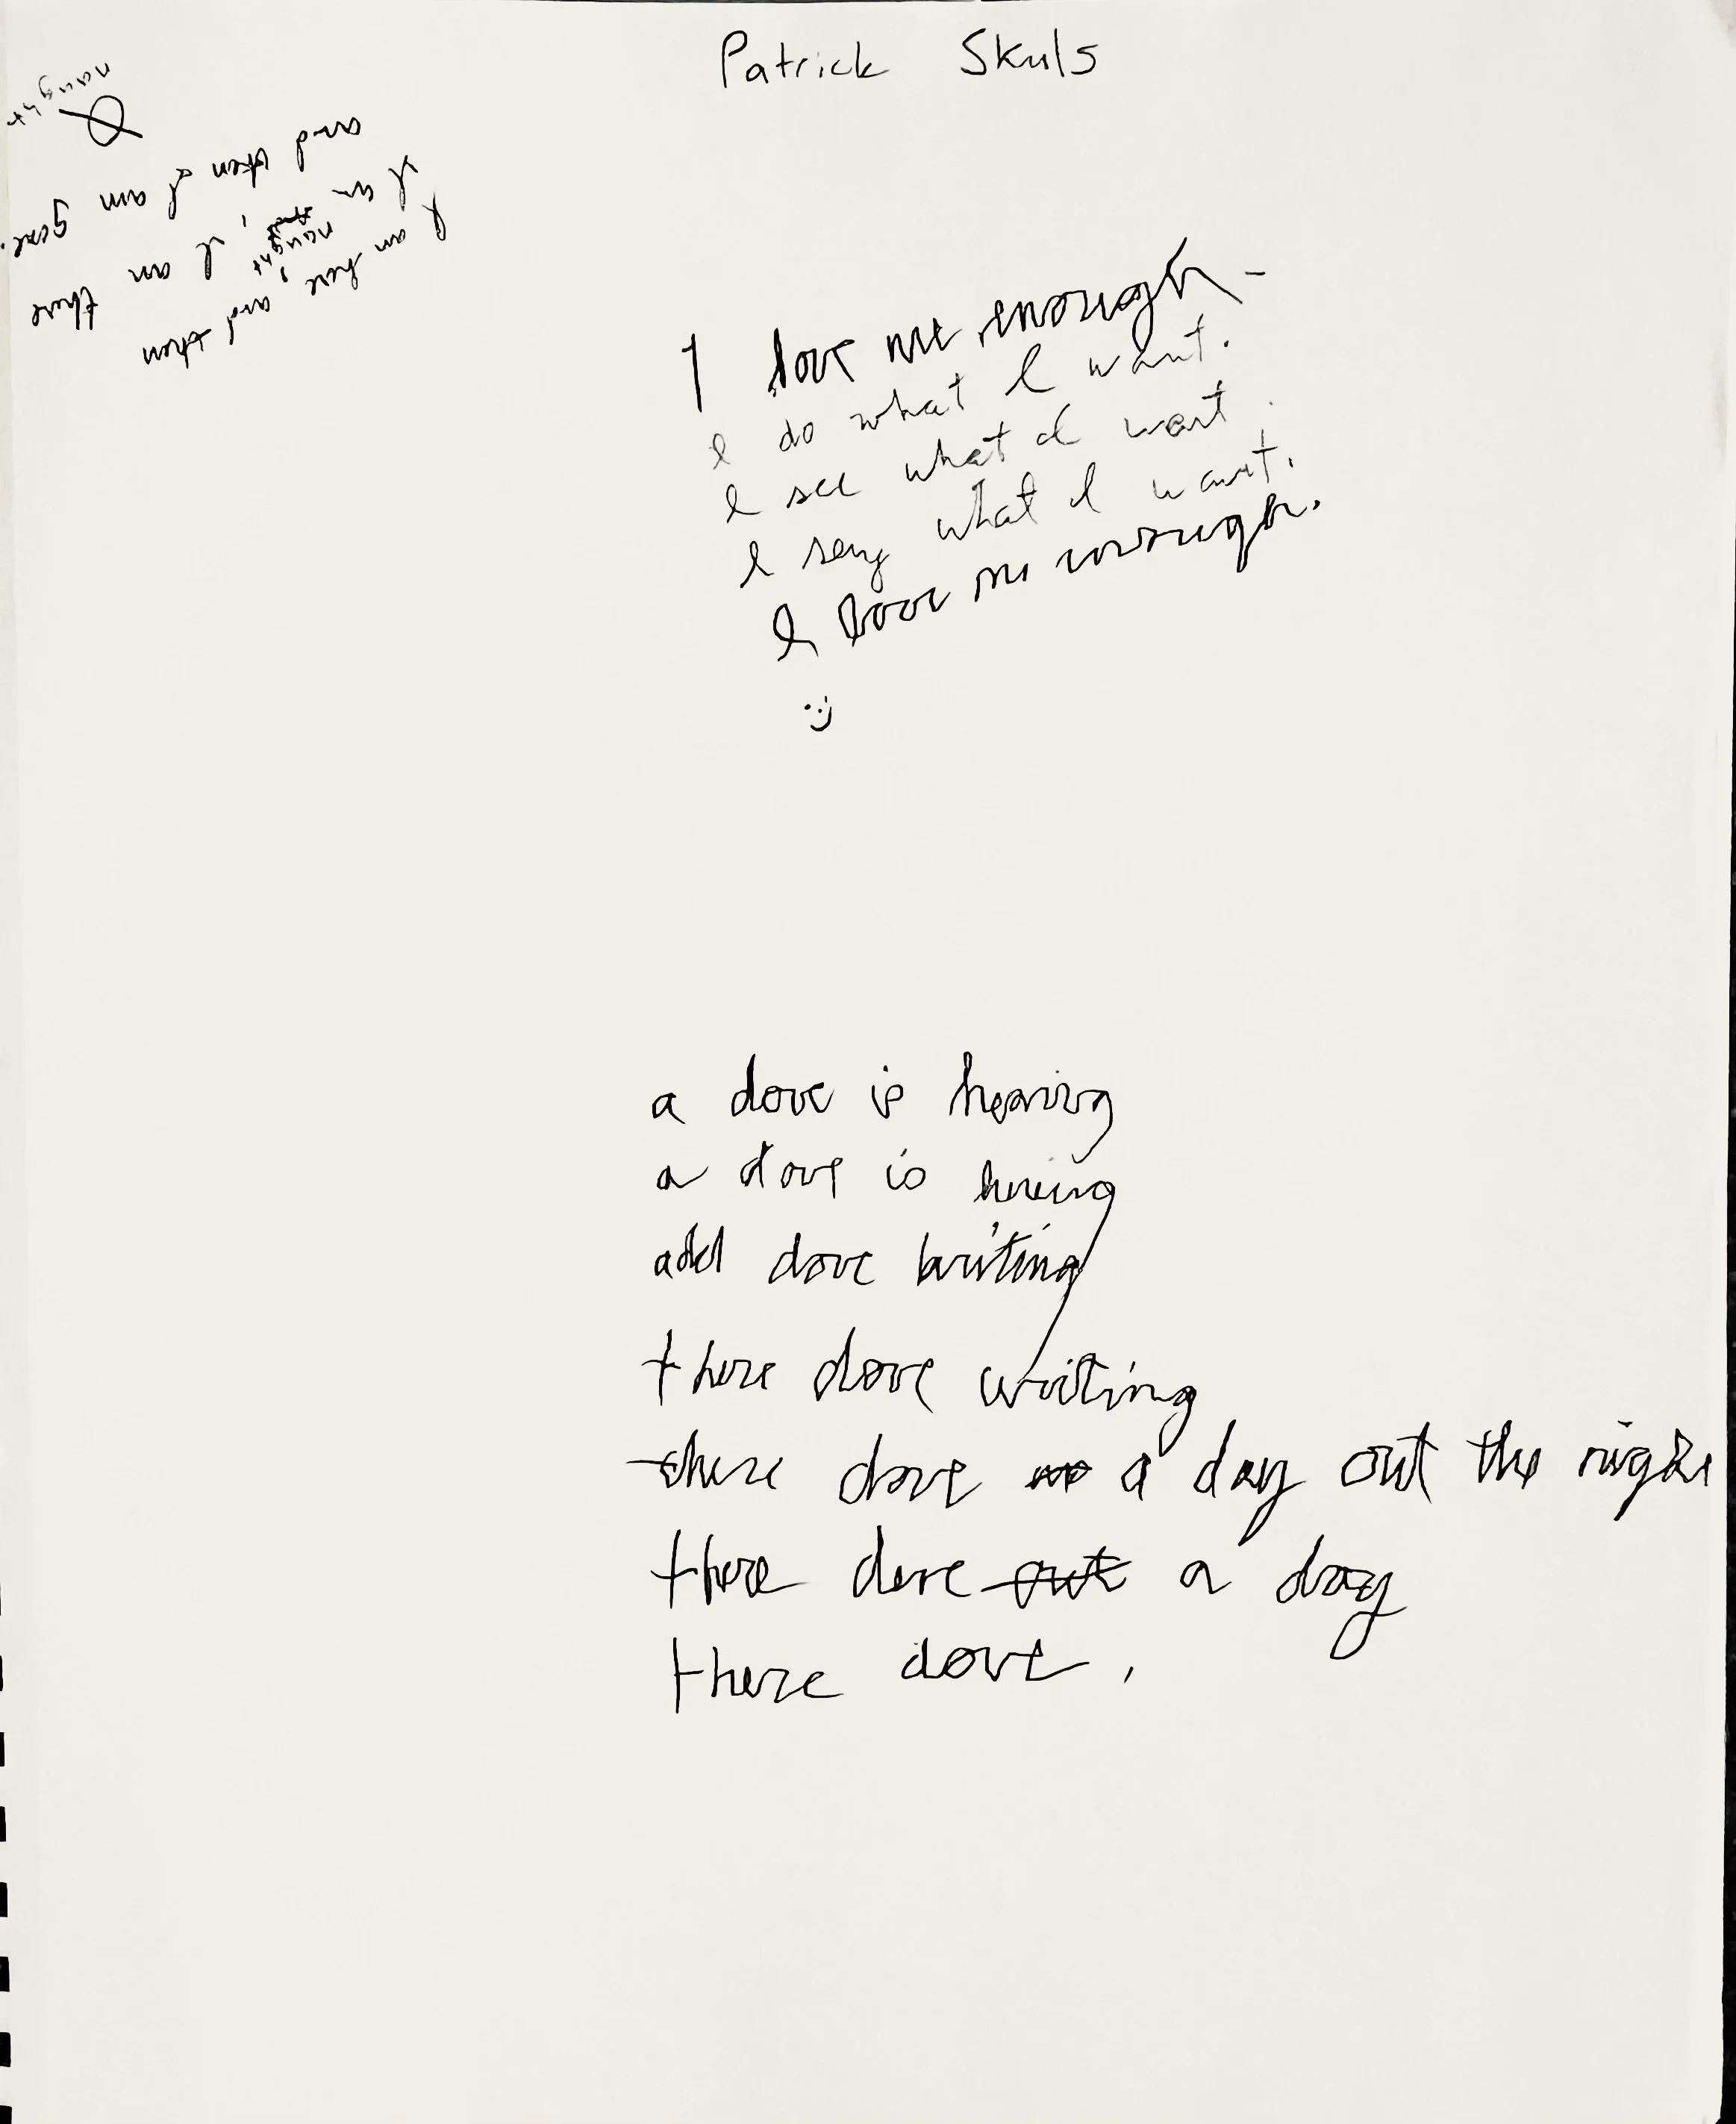 Patrick Skuls
I love me enough -
I do what I want.
I see what I want.
I say what I want.
I love me enough.
:)
a dove is hearing
a dove is hiring
add dove writing
there dove writing
there dove a day out the night
there dove out a day
there dove.
I am here, and then
I am naught, I am there
and then I am gone.
naught